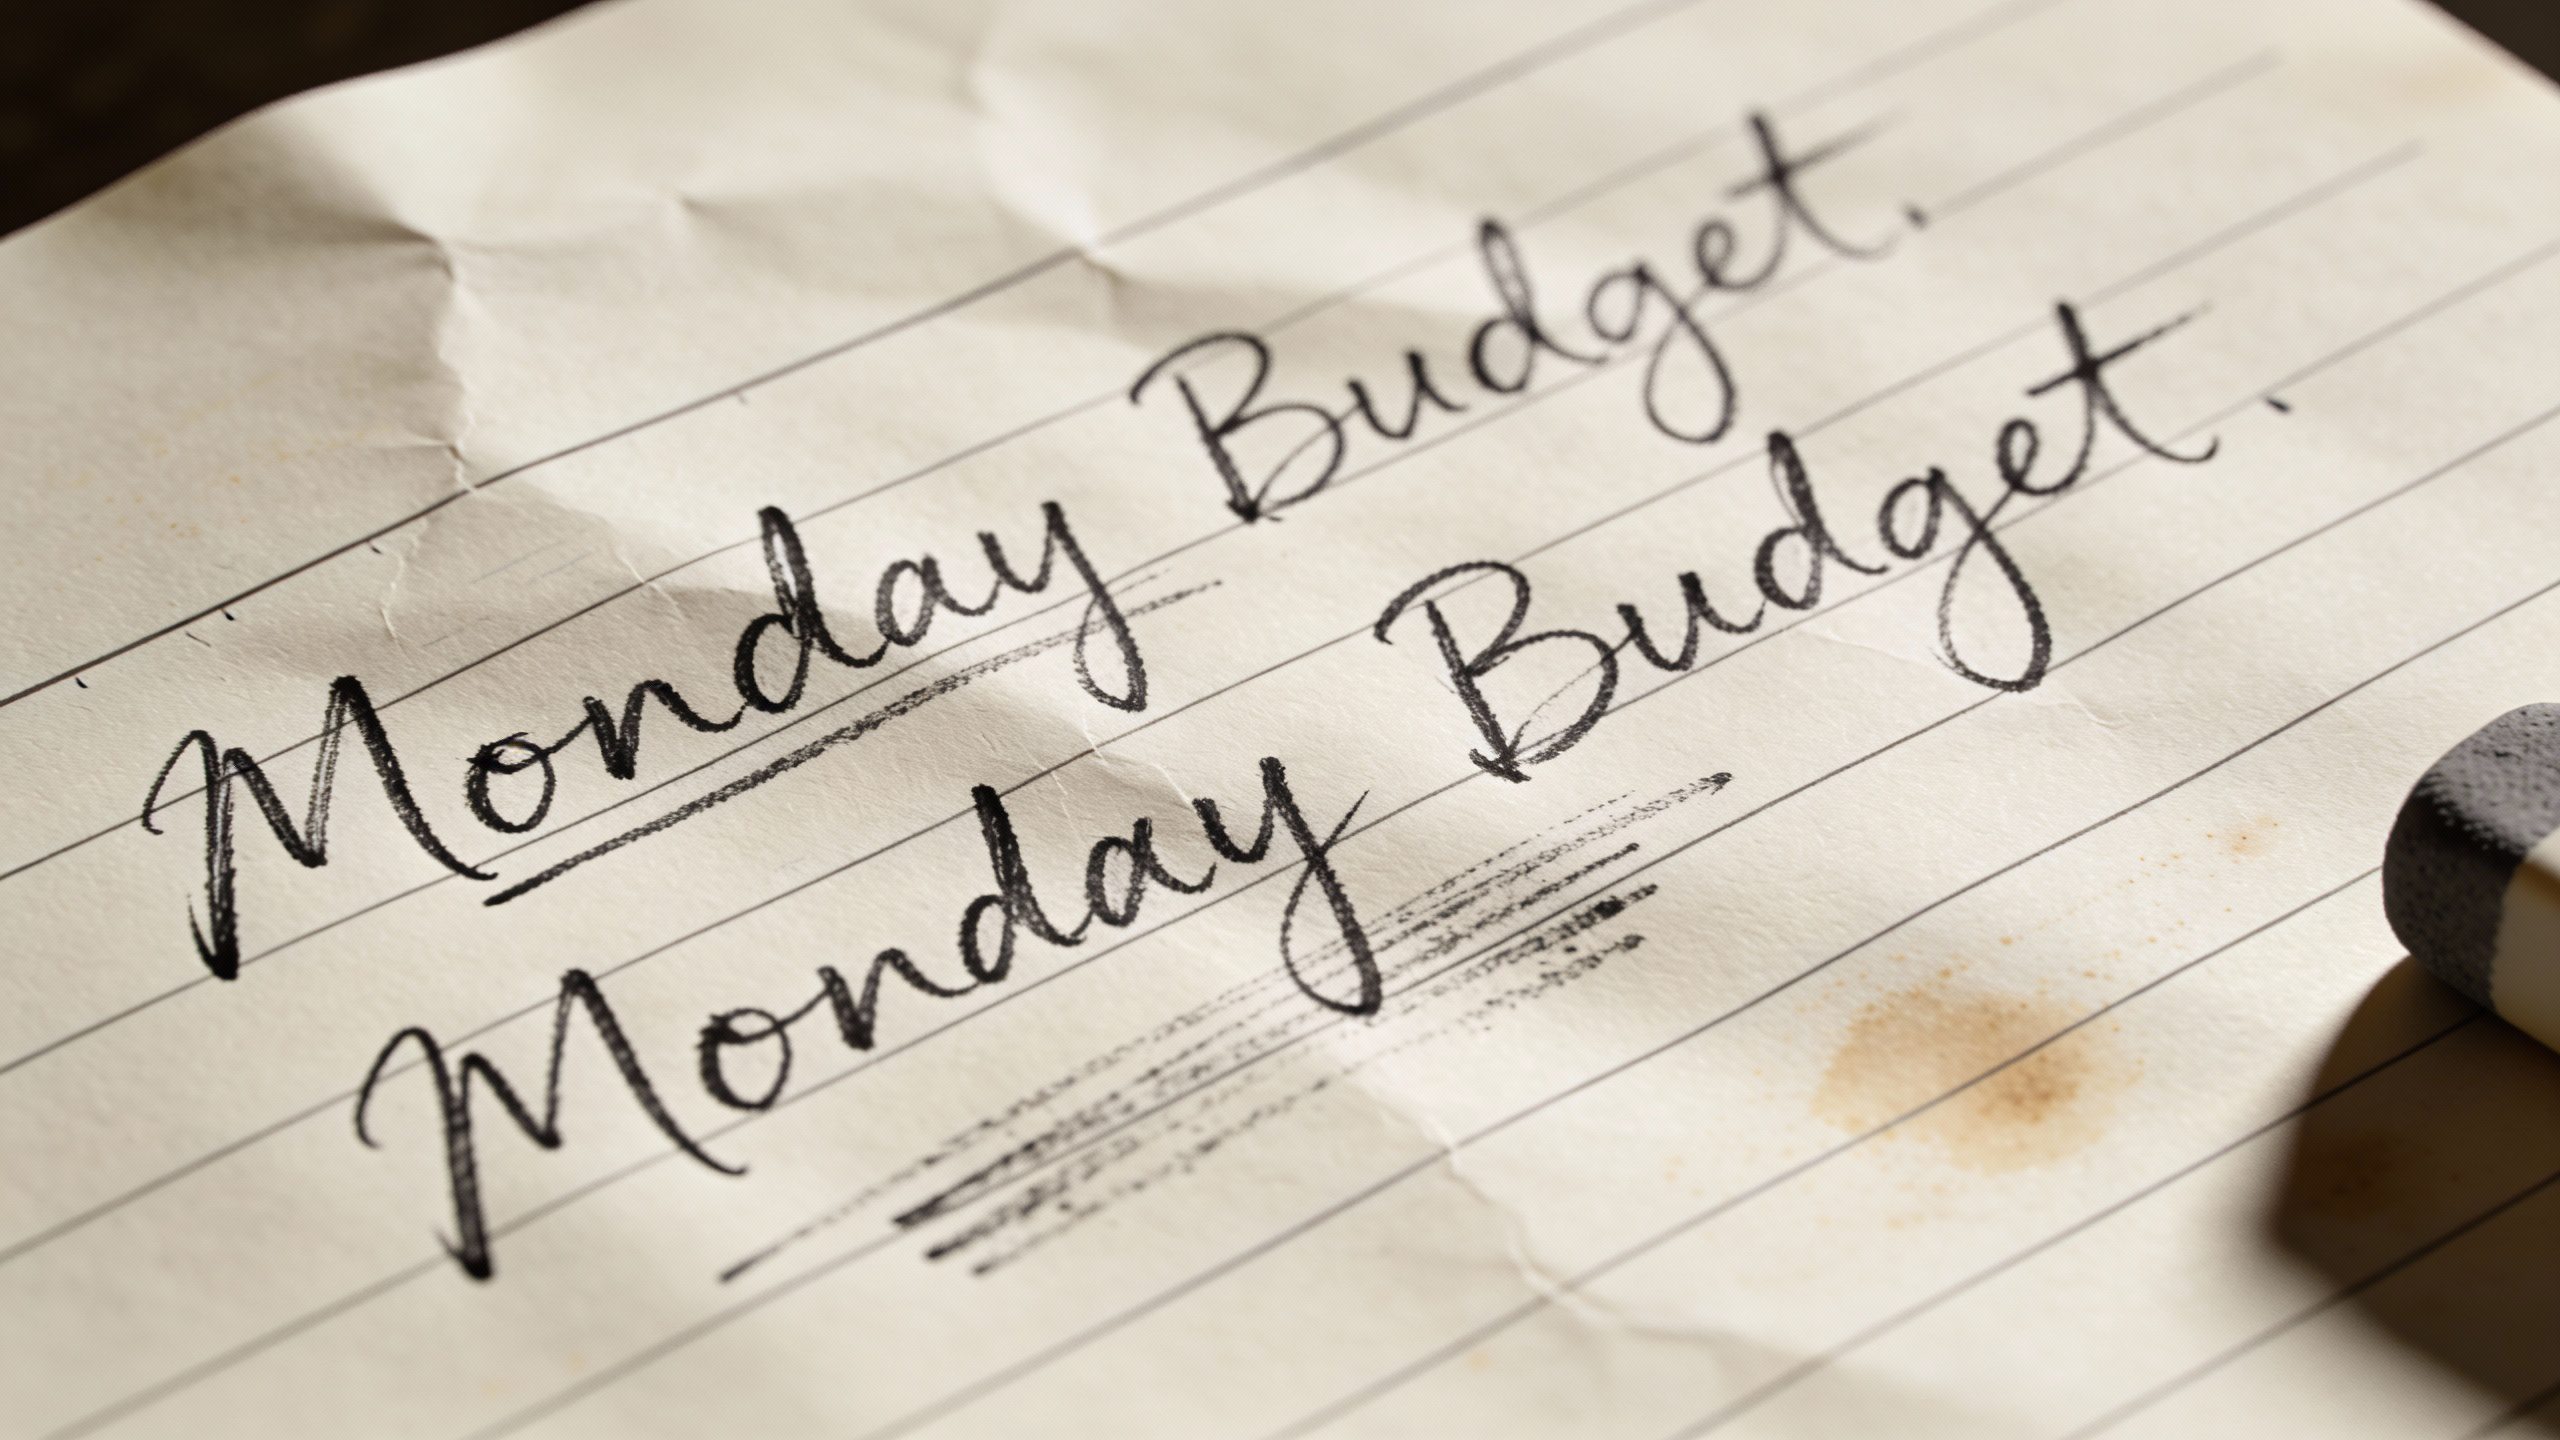 Monday Budget.
Monday Budget.